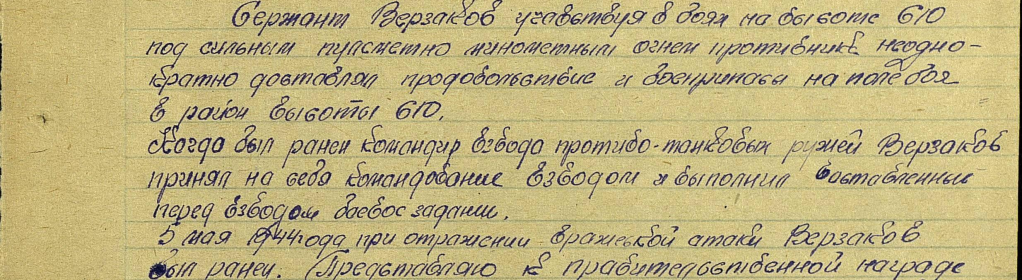 Сержант Верзаков учавствуя в боях на высоте 610
под сильным пулеметно минометным огнем противника неодно-
кратно доставлял продовольствие и боеприпасы на поле боя
в район высоты 610.
Когда был ранен командир взвода противо-танковых ружей Верзаков
принял на себя командование взводом и выполнил поставленные
перед взводом боевое задании.
5 мая 1944 года при отражении вражеской атаки Верзаков
был ранен. Представляю к правительственной награде